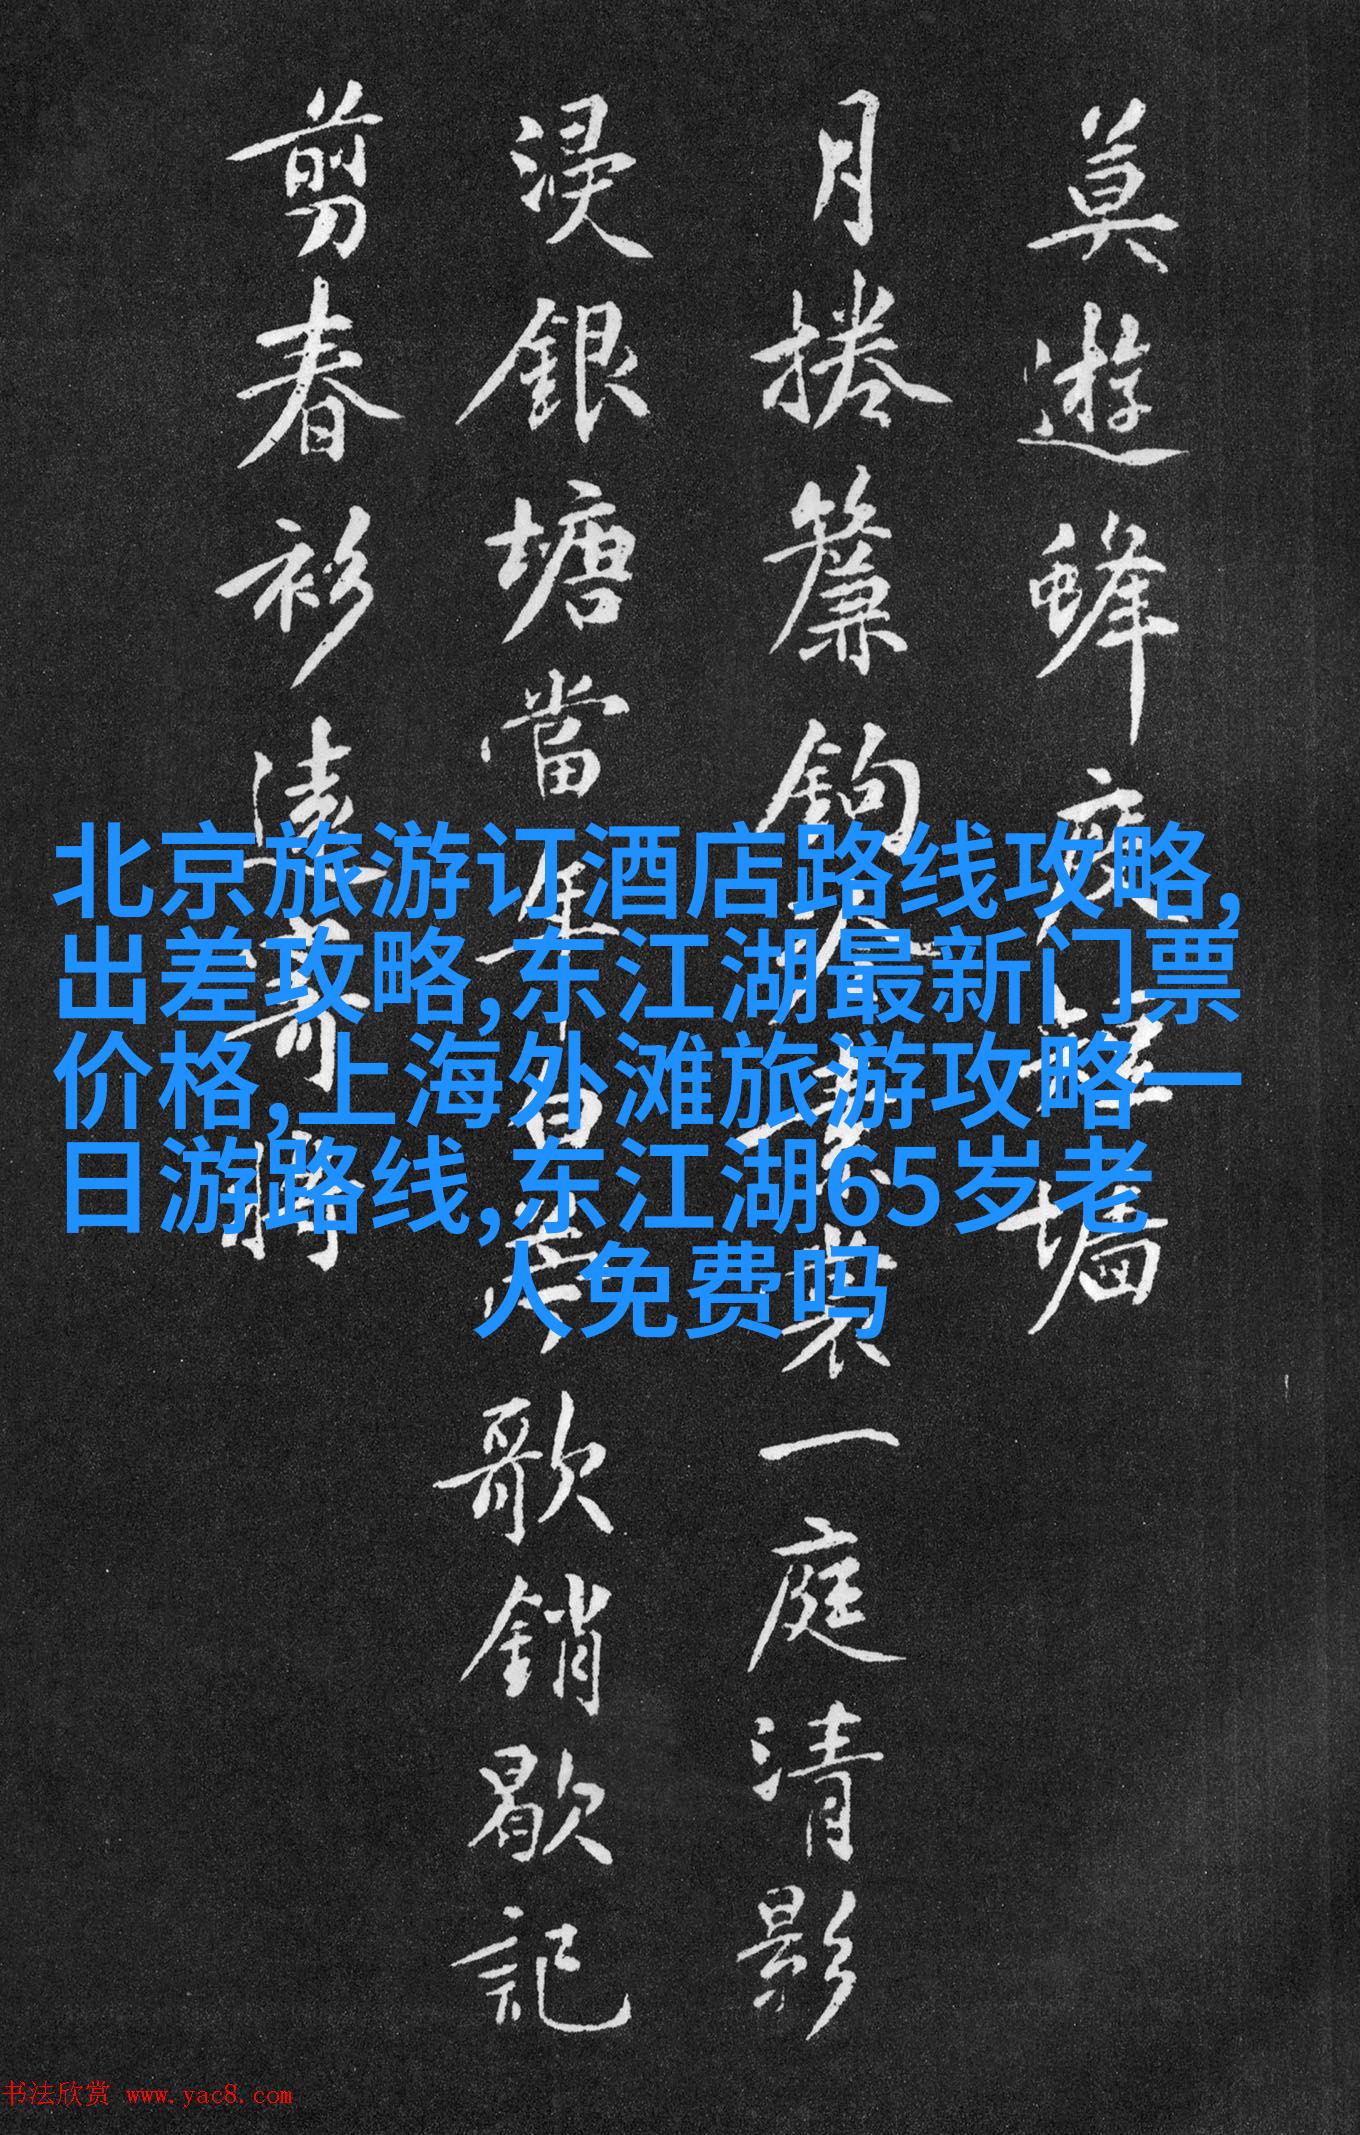 莫遊蜂
月捲簾鉤
裳一庭清影
浸銀塘當年
歌銷歇記
剪春衫
北京旅游订酒店路线攻略,
出差攻略,东江湖最新门票
价格,上海外滩旅游攻略一
日游路线,东江湖65岁老
人免费吗
书法欣赏 www.yac8.com